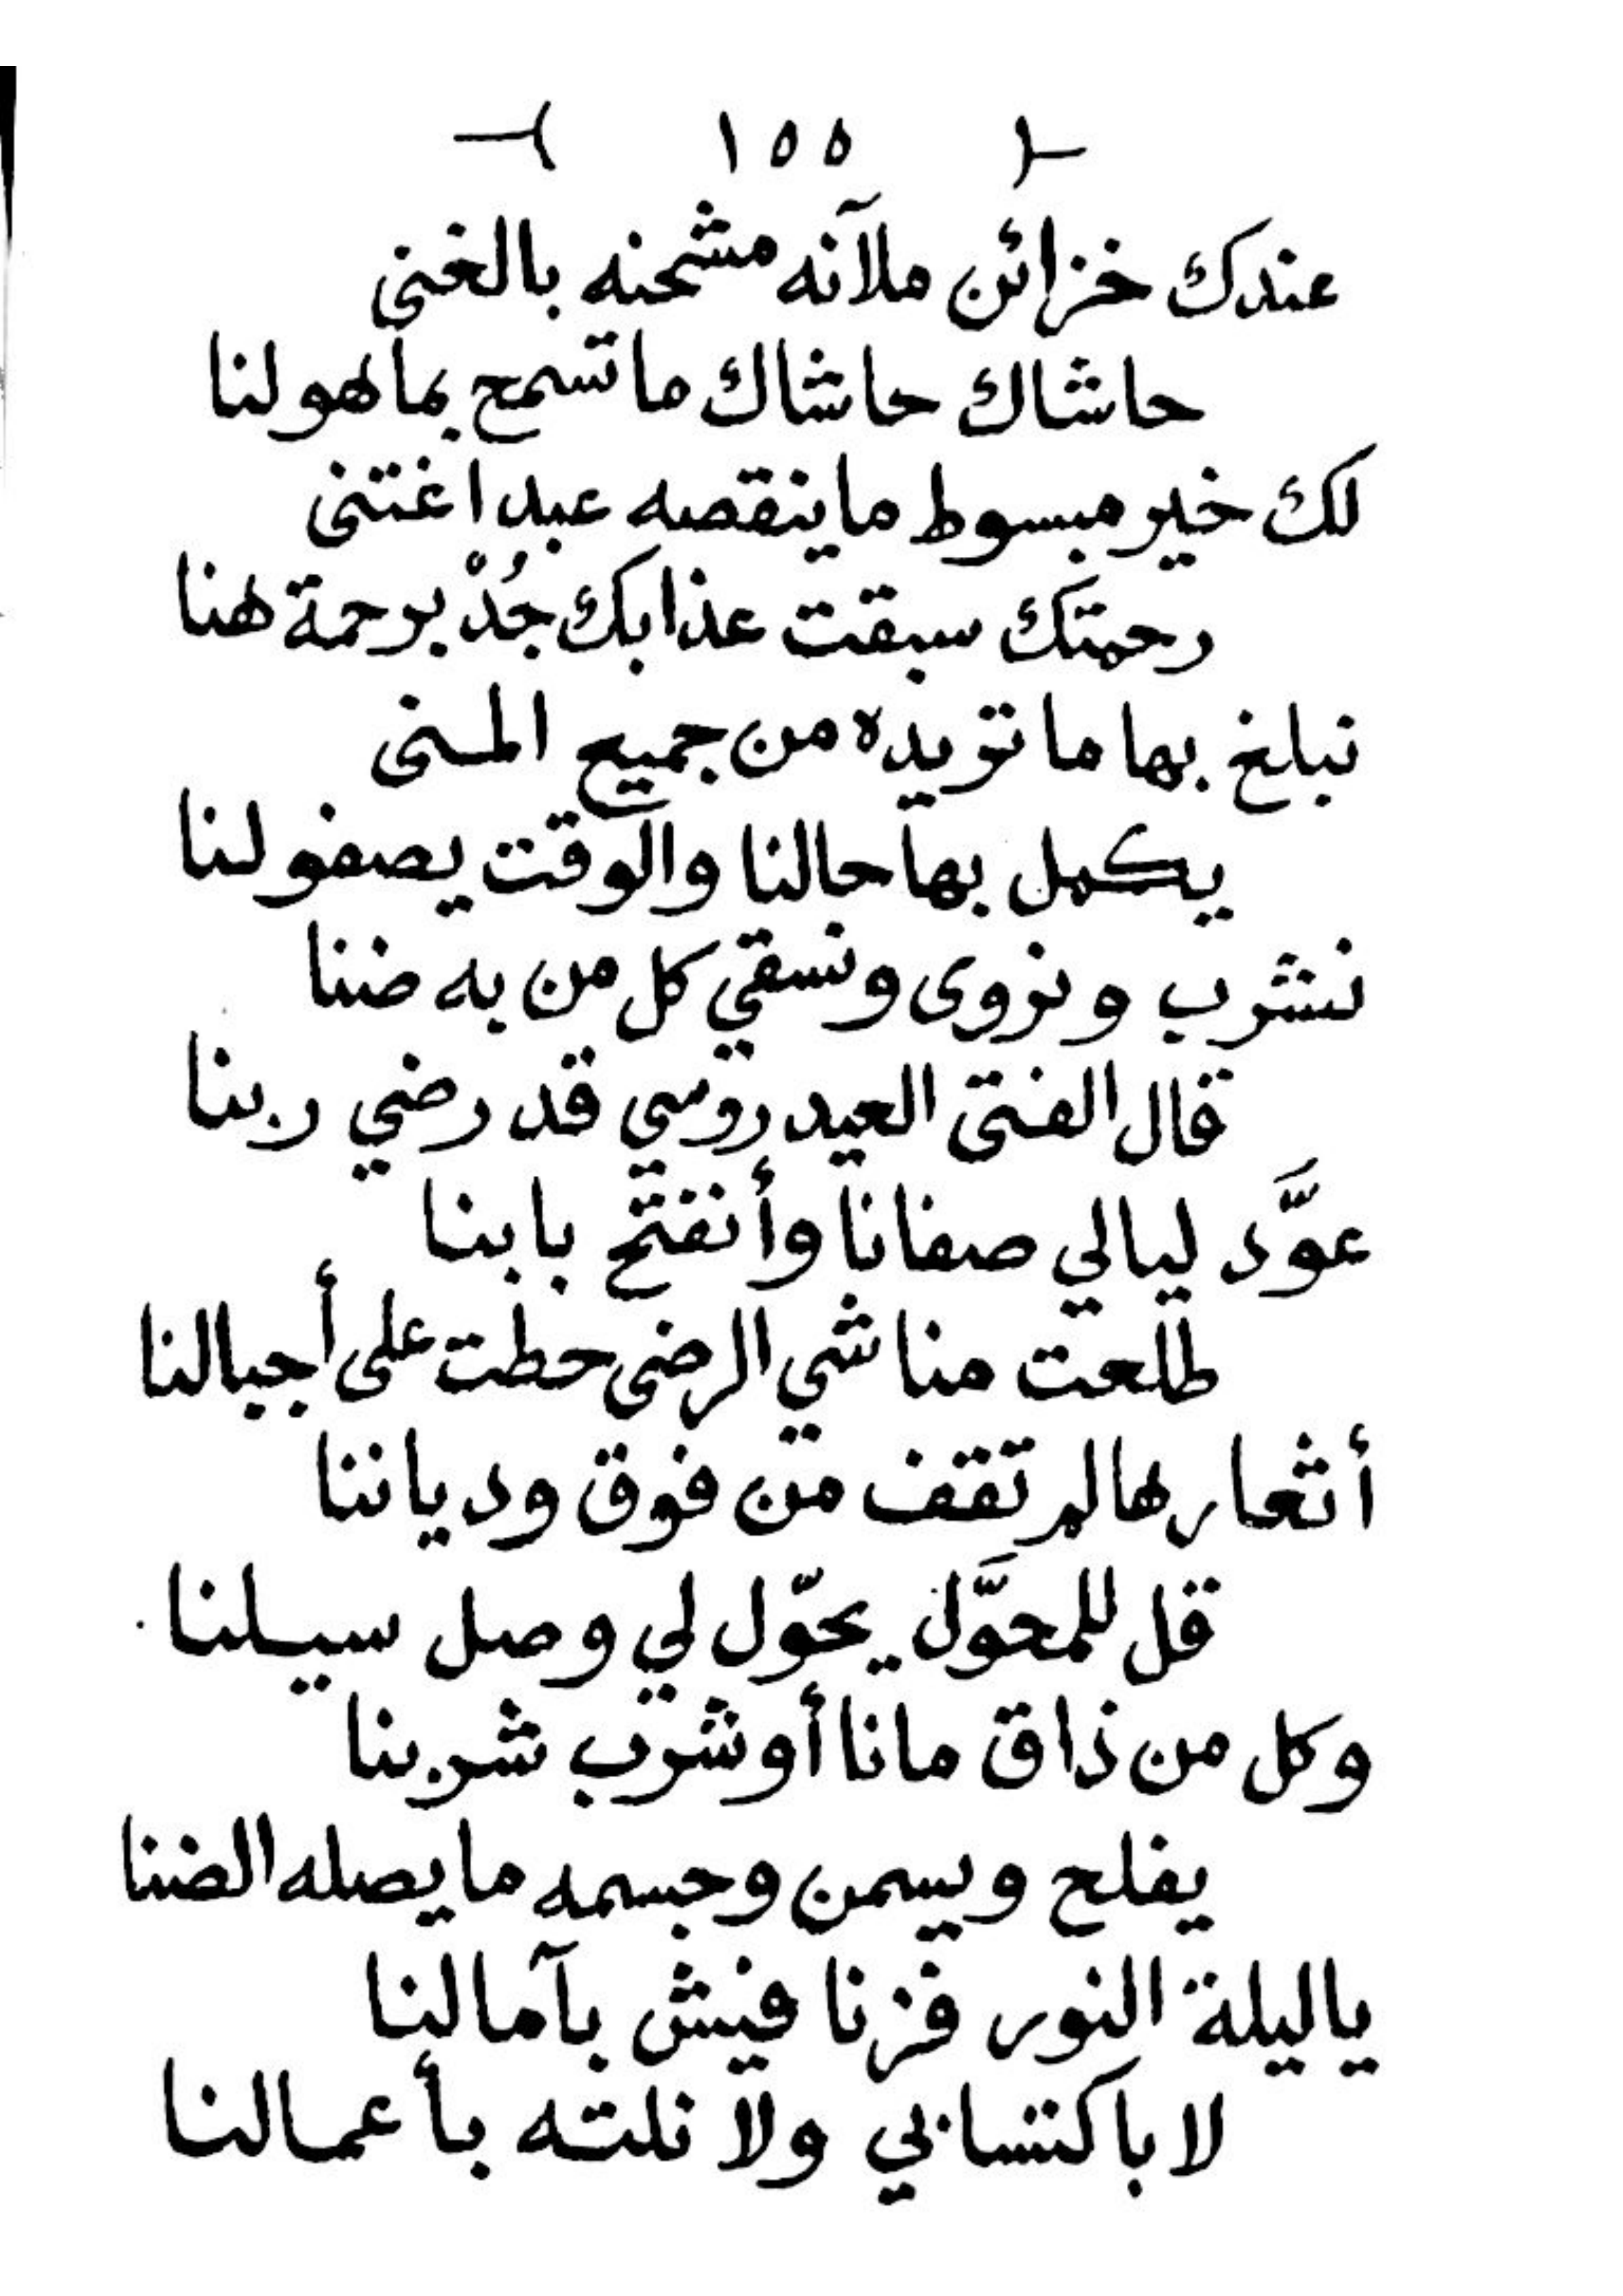 ١٥٥
عندك خزائن ملآنه مشحنه بالغنى
حاشاك حاشاك ما تسمح بما هو لنا
لك خير مبسوط ما ينقصه عبد اغتنى
رحمتك سبقت عذابك جُدْ برحمة هنا
نبلغ بها ما نريده من جميع المنى
يكمل بها حالنا والوقت يصفو لنا
نشرب ونروى ونسقي كل من به ضنا
قال الفتى العيدروسي قد رضي ربنا
عوَّد ليالي صفانا وأنفتح بابنا
طلعت مناشي الرضى حطت على أجبالنا
أثعارها لم تقف من فوق ودياننا
قل للمحوَّل يحوّل لي وصل سيلنا
وكل من ذاق مانا أو شرب شربنا
يفلح ويسمن وجسمه ما يصله الضنا
يا ليلة النور فزنا فيش بآمالنا
لا باكتسابي ولا نلته بأعمالنا